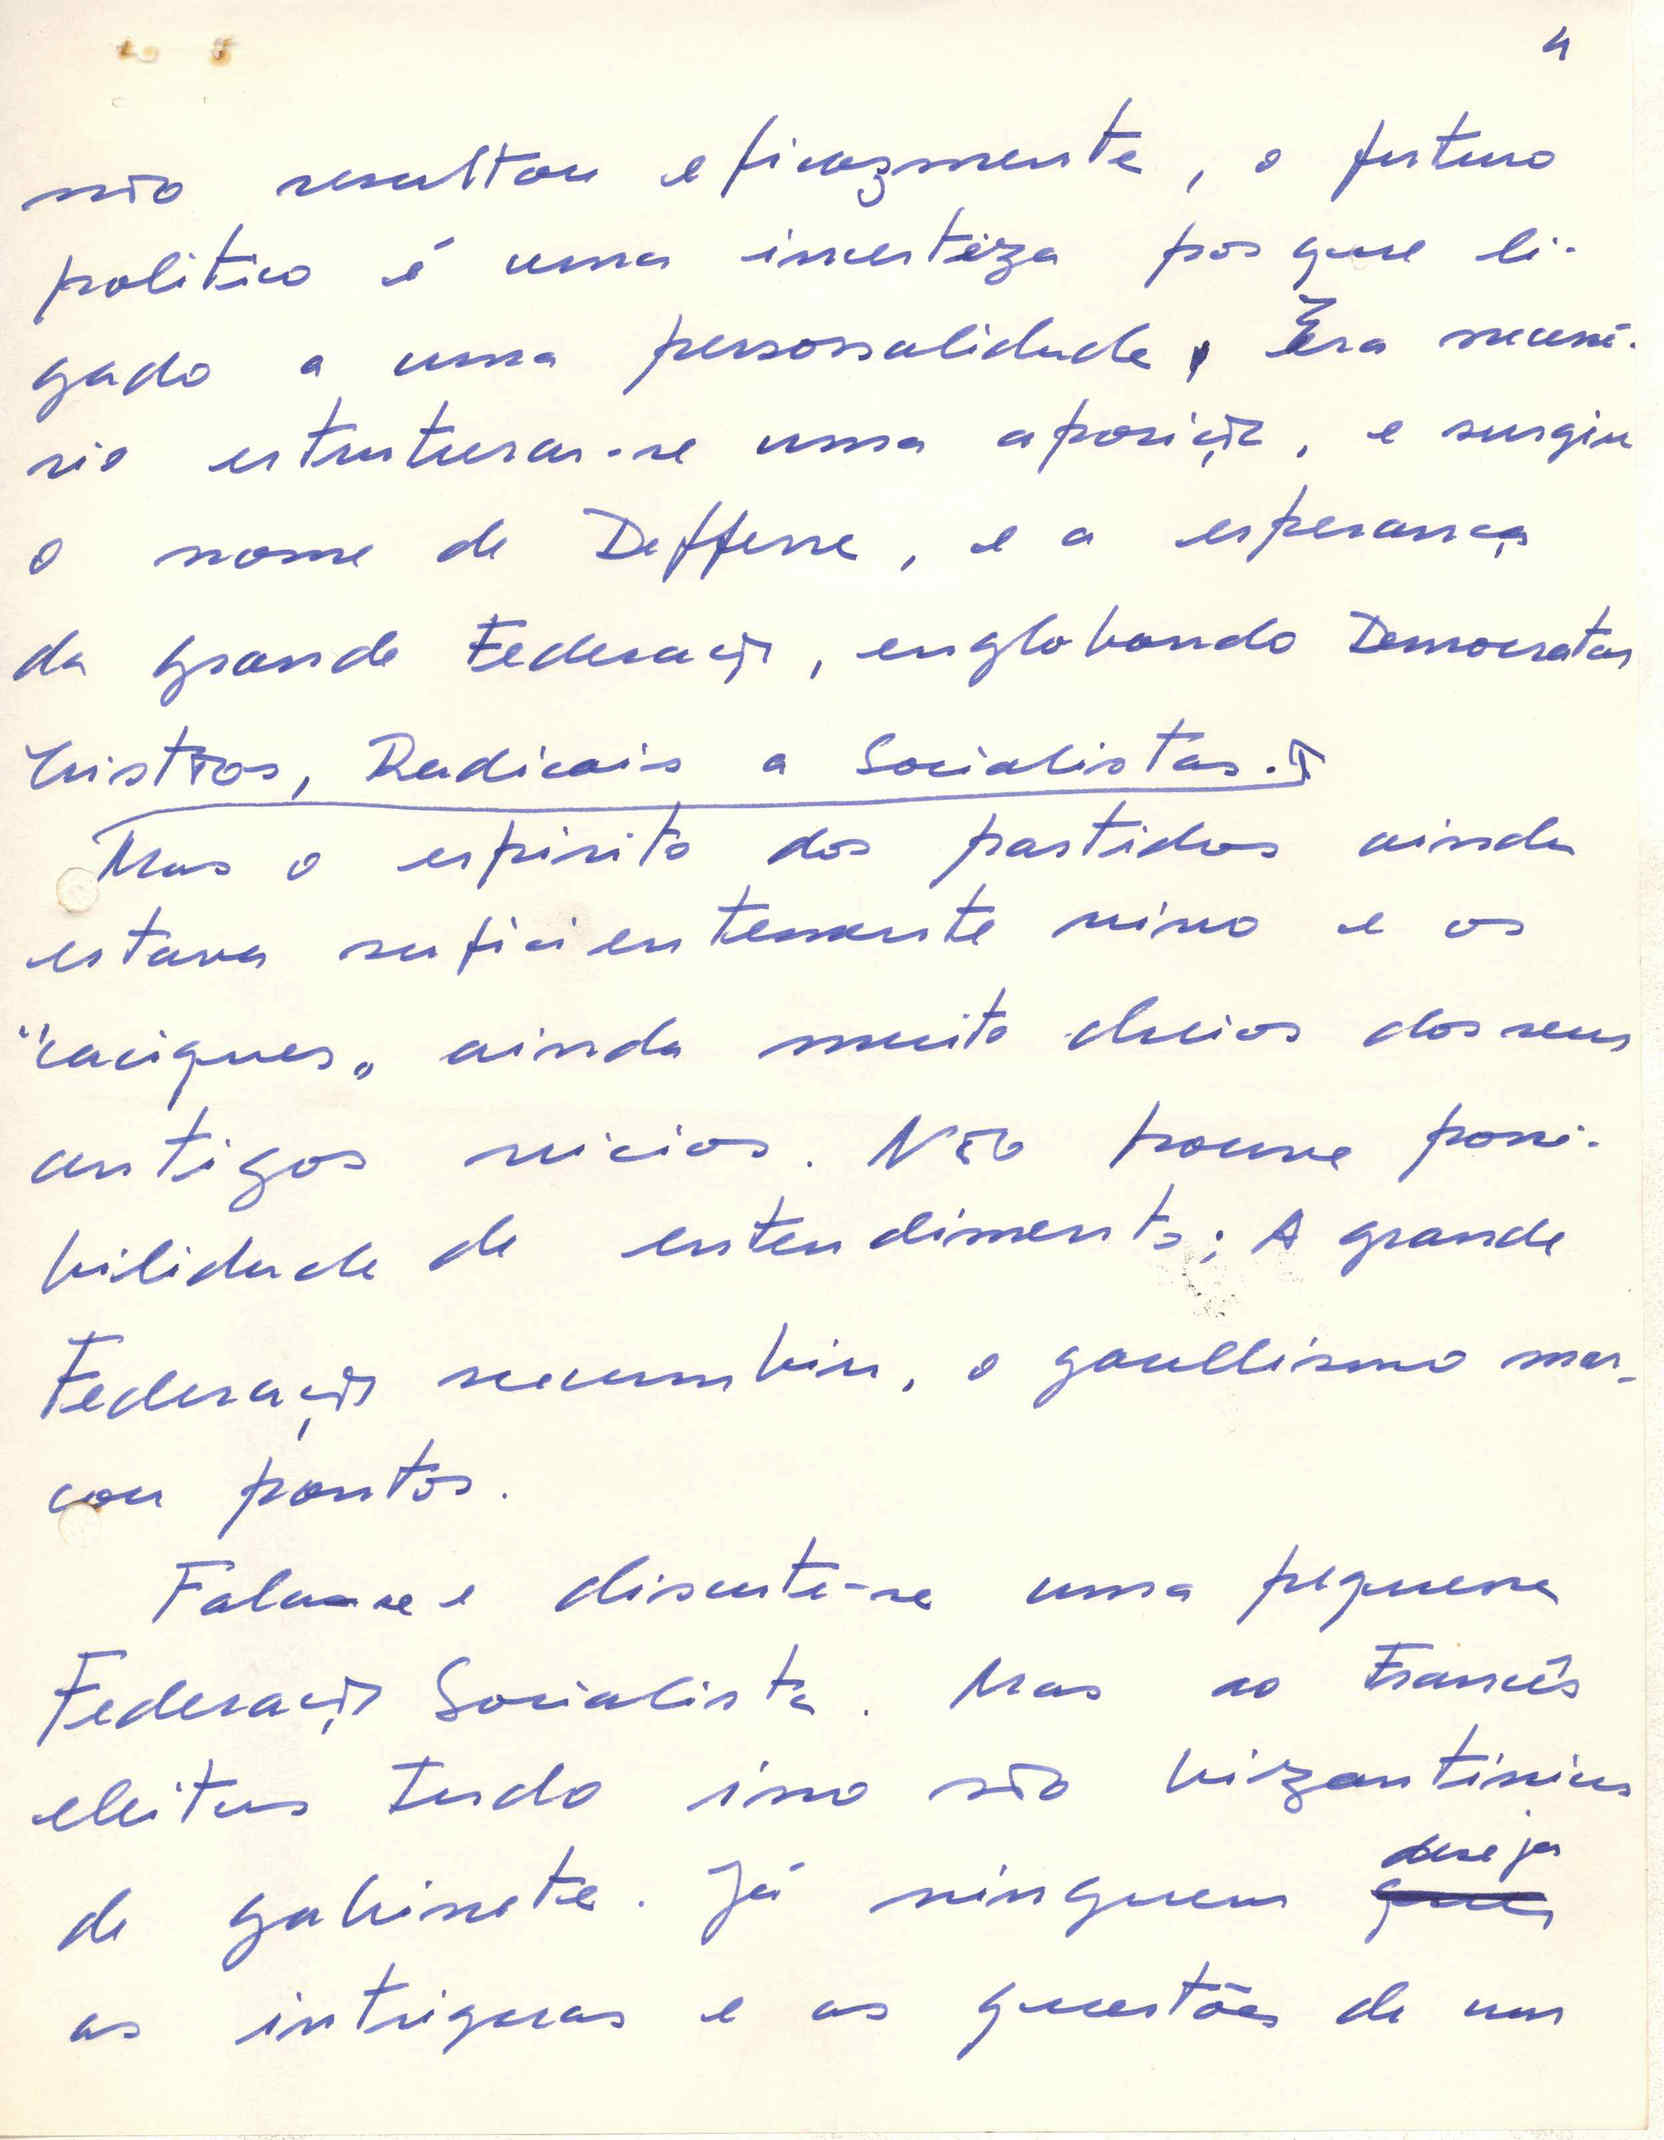 4
não resultou eficazmente, o futuro
politico é uma incerteza porque li-
gado a uma personalidade. Era necessá-
rio estruturar-se uma oposição, e surgiu
o nome de Defferre, e a esperança
da grande Federação, englobando Democratas
Cristãos, Radicais a Socialistas.
Mas o espirito dos partidos ainda
estava suficientemente vivo e os
"caciques" ainda muito cheios dos seus
antigos vicios. Não houve possi-
bilidade de entendimento; A grande
Federação sucumbiu, o gaullismo mar-
cou pontos.
Fala-se e discute-se uma pequena
Federação Socialista. Mas ao Francês
eleitor tudo isso são bizantinices
deseja
de gabinete. Já ninguem quer
as intrigas e as questões de um